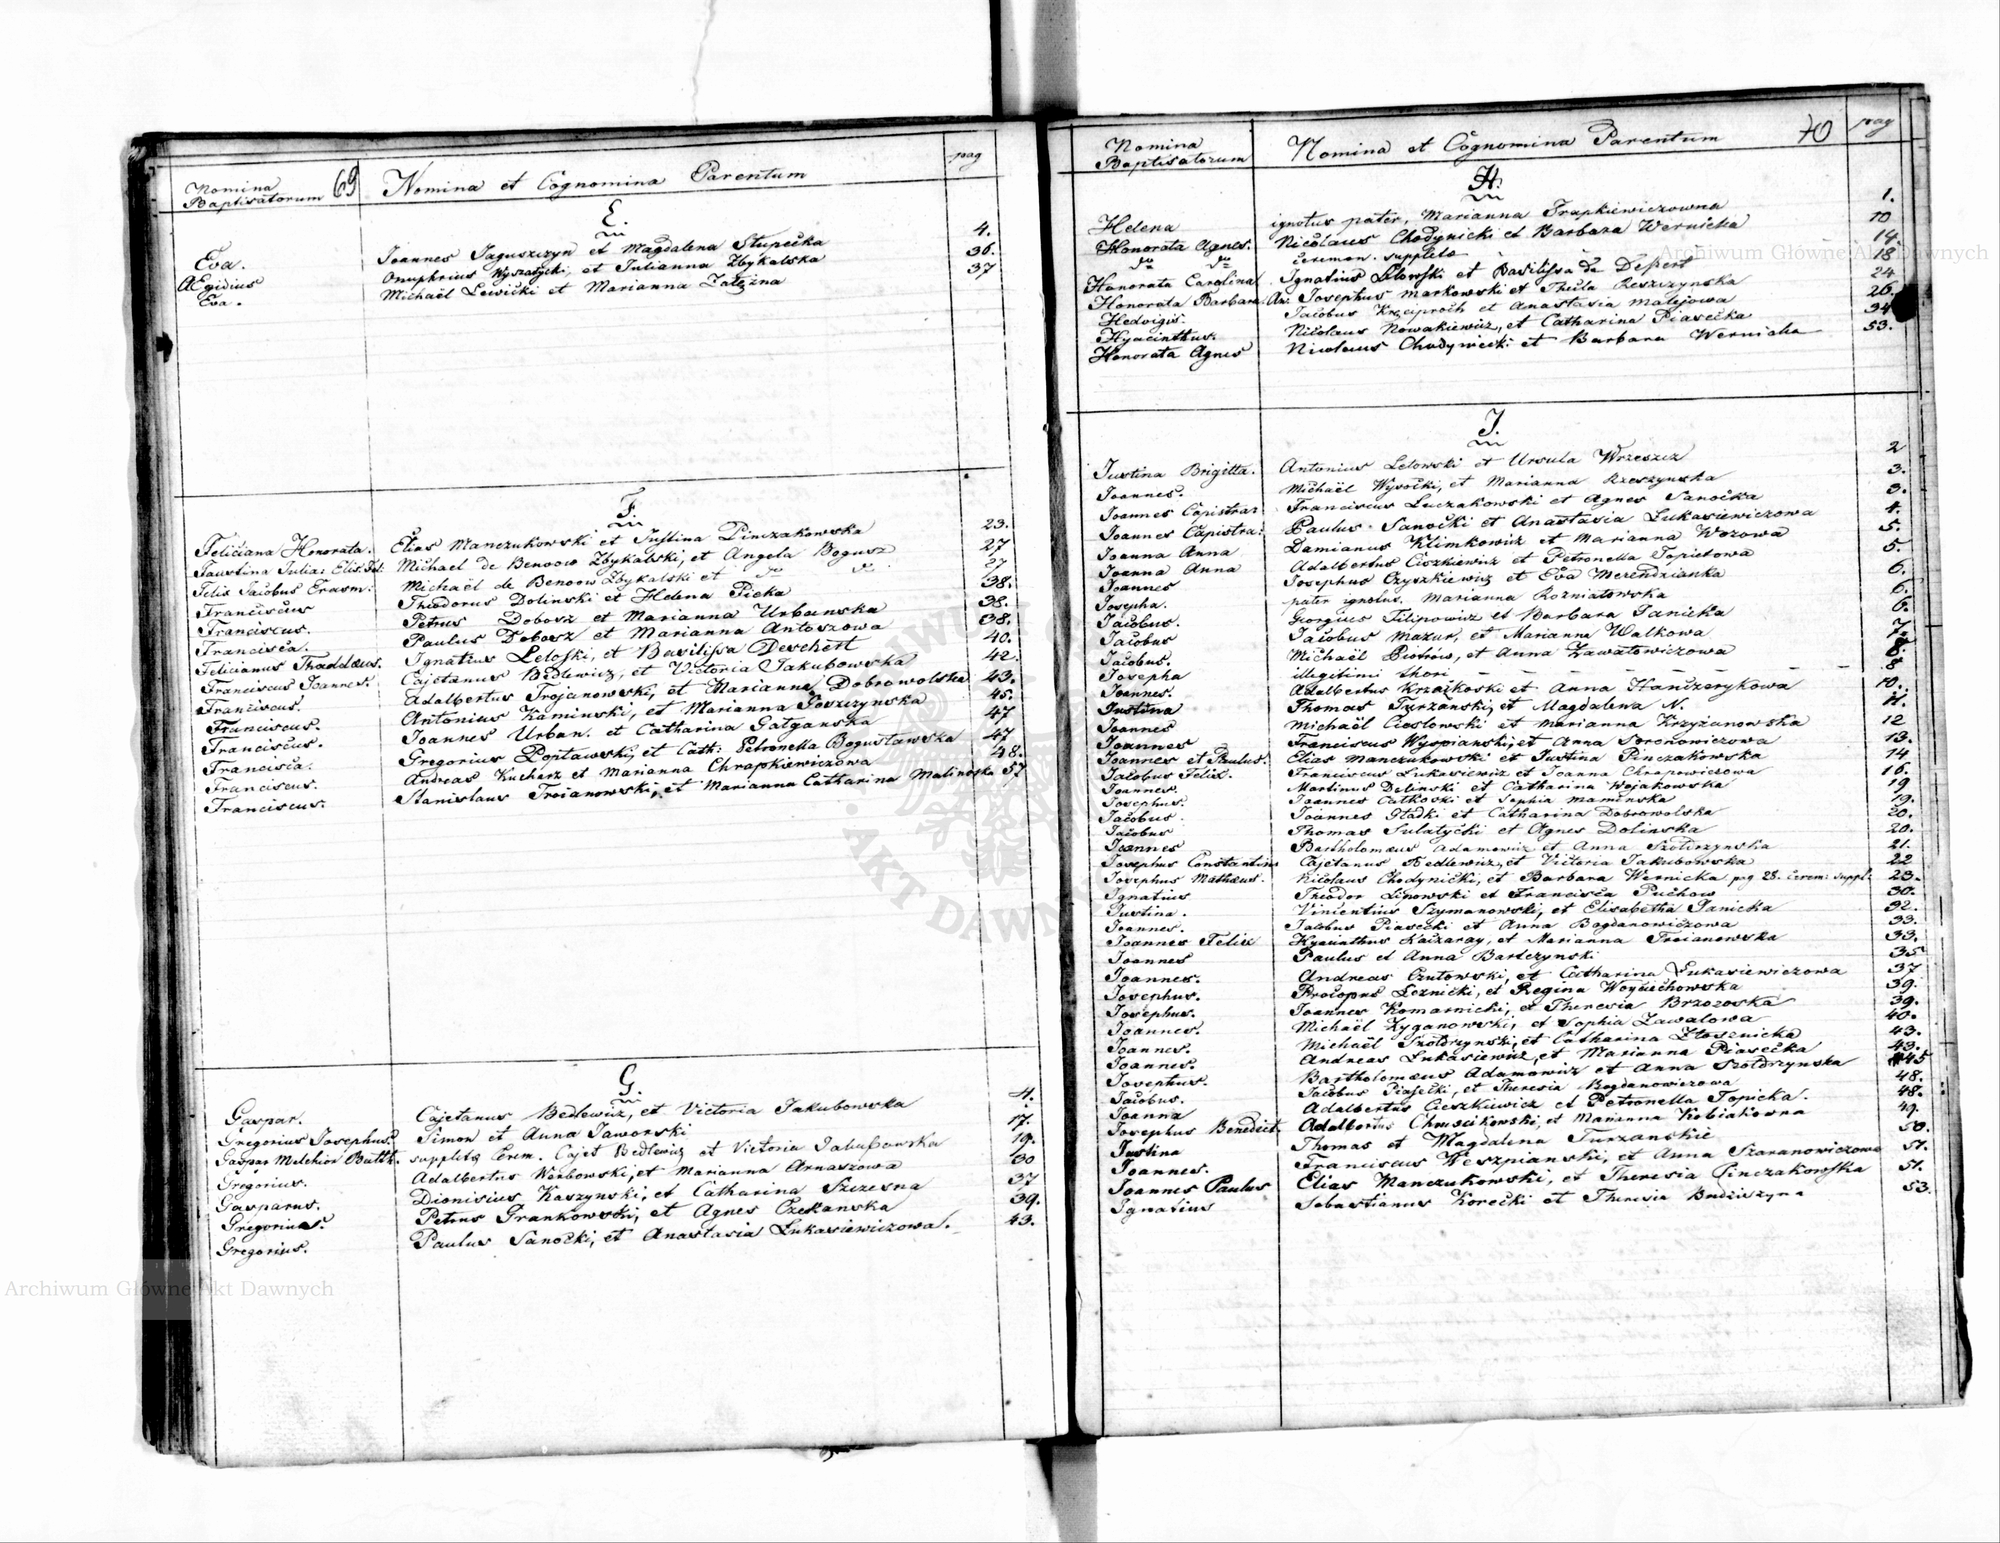 Nomina Baptisatorum 69 Nomina et Cognomina Parentum pag
E.
Eva. Joannes Jaguszczyn et Magdalena Słupecka 4.
Ægidius Onuphrius Wyszatycki, et Julianna Zbykalska 36.
Eva. Michaël Lewicki et Marianna Zależna 37
F.
Feliciana Honorata. Elias Manczukowski et Justina Pinczakowska 23.
Faustina Julia: Elis: Michael de Benoow Zbykalski, et Angela Bogusz 27
Felix Jacobus Erasm. Michaël de Benoow Zbykalski et do do 27
Franciscus Theodorus Dolinski et Helena Picka 38.
Franciscus. Petrus Dobosz et Marianna Urbanska 38.
Francisca. Paulus Dobosz et Marianna Antoszowa 38.
Felicianus Thaddæus. Ignatius Letoski, et Basilissa Deschert 40.
Franciscus Joannes. Cajetanus Bedlewicz, et Victoria Jakubowska 42.
Franciscus. Adalbertus Trojanowski, et Marianna Dobrowolska 43.
Franciscus. Antonius Kaminski, et Marianna 45.
Franciscus. Joannes Urban. et Catharina Gatganska 47
Francisca. Gregorius Popławski, et Cath: Petronella Bogusławska 47
Franciscus. Andreas Kucharz et Marianna Chrapkiewiczowa 48.
Franciscus. Stanislaus Troianowski, et Marianna Catharina Malinoska 57
G.
Gaspar. Cajetanus Bedlewicz, et Victoria Jakubowska 4.
Gregorius Josephus. Simon et Anna Jaworski 17.
Gaspar Melchior Balth. suppletæ Cerem. Cajet Bedlewicz et Victoria Jakubowska 19.
Gregorius. Adalbertus Werbowski, et Marianna Arnaszowa 30
Gasparus. Dionisius Kaszynski, et Catharina Szczesna 37
Gregorius. Petrus Frankowski, et Agnes Czekanska 39.
Gregorius. Paulus Sanocki, et Anastasia Łukasiewiczowa. 43.
Nomina Baptisatorum Nomina et Cognomina Parentum 70 pag
H.
Helena ignotus pater, Marianna Frapkiewiczowna 1.
Honorata Agnes. Nicolaus Chodynicki et Barbara Wernicka 10
do do Ceremon. suppleta 14
Honorata Carolina Ignatius Letowski et Basilissa de Depert 18
Honorata Barbara An: Josephus Markowski et Thecla Reszczynska 24
Hedvigis. Jacobus Krzaproch et Anastasia Malejowa 26.
Hyacinthus. Nicolaus Nowakiewicz, et Catharina Piasecka 34
Honorata Agnes Nicolaus Chodynicki et Barbara Wernicka 53.
J.
Justina Brigitta. Antonius Letowski et Ursula Wrzeszcz 2
Joannes. Michaël Wysocki, et Marianna Rzeszynska 3.
Joannes Capistran Franciscus Luczakowski et Agnes Sanocka 3.
Joannes Capistra: Paulus Sanocki et Anastasia Łukasiewiczowa 4.
Joanna Anna Damianus Klimkowicz et Marianna Wozowa 5.
Joanna Anna Adalbertus Ciszkiewicz et Petronella Topictowa 5.
Joannes Josephus Czyszkiewicz et Eva Merendzianka 6.
Josepha. pater ignotus. Marianna Rozniatowska 6.
Jacobus. Georgius Filipowicz et Barbara Janicka 6.
Jacobus Jacobus Mazur, et Marianna Walkowa 7.
Jacobus. Michaël Piotrów, et Anna Zawatowiczowa 8.
Josepha illegitimi thori 8
Joannes. Adalbertus Krzaczkoski et Anna Hanczerykowa 10.
Justina Thomas Turzanski, et Magdalena N. 11.
Joannes Michaël Ciasłowski et Marianna Krzyżanowska 12
Joannes Franciscus Wyspianski, et Anna 13.
Joannes et Paulus. Elias Manczukowski et Justina Pinczakowska 14
Jacobus Felix. Franciscus Łukasiewicz et Joanna Chrapowiczowa 16.
Joannes. Martinus Dolinski et Catharina Wojakowska 19
Josephus. Joannes Catkoski et Sophia Maminska 19.
Jacobus. Joannes Gładki et Catharina Dobrowolska 20.
Jacobus Thomas Sulatycki et Agnes Dolinska 20.
Joannes Bartholomæus Adamowicz et Anna Szołdrzynska 21.
Josephus Constantius Cajetanus Bedlewicz, et Victoria Jakubowska 22
Josephus Mathæus. Nicolaus Chodynicki, et Barbara Wernicka pag 28. Cerem: suppl: 23.
Ignatius Theodor Lipowski et Francisca Puchow 30.
Justina. Vincentius Szymanowski, et Elisabetha Janicka 32.
Joannes. Jacobus Piasecki et Anna Bogdanowiczowa 33.
Joannes Felix Hyacinthus Kaczaray, et Marianna Troianowska 33.
Joannes Paulus et Anna Bartczynski 35
Joannes. Andreas Czutowski, et Catharina Łukasiewiczowa 37
Josephus. Procopus Łoznicki, et Regina Woyciechowska 39.
Josephus. Joannes Komarnicki, et Theresia Brzozoska 39.
Joannes. Michaël Zyganowski, et Sophia Zawatowa 40.
Joannes. Michaël Szołdrzynski, et Catharina 43.
Joannes. Andreas Łukasiewicz, et Marianna Piasecka 43.
Josephus. Bartholomæus Adamowicz et Anna Szołdrzynska 45
Jacobus. Jacobus Piasecki, et Theresia Bogdanowiczowa 48.
Joanna Adalbertus Cieszkiewicz et Petronella Topicka. 48.
Josephus Benedict. Adalbertus Chruscikowski, et Marianna Kobiakowna 49.
Justina Thomas et Magdalena Turzanskie 50.
Joannes. Franciscus Weszpianski, et Anna Szaranowiczowa 51.
Joannes Paulus Elias Manczukowski, et Theresia Pinczakowska 51.
Ignatius Sebastianus Korecki et Theresia Budziszyna 53.
Archiwum Główne Akt Dawnych
Archiwum Główne Akt Dawnych